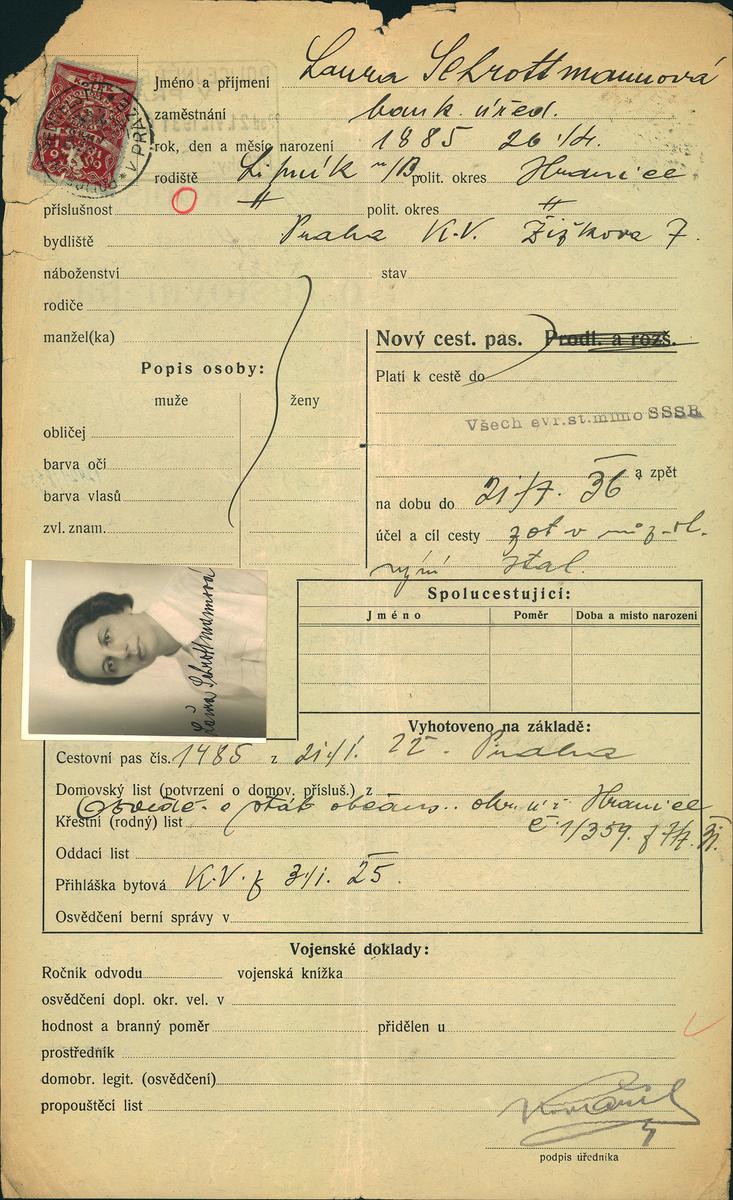 Jméno a příjmení Laura Schrottmannová
zaměstnání bank. úřed.
rok, den a měsíc narození 1885 26/4.
rodiště Lipník n/B polit. okres Hranice
příslušnost " polit. okres "
bydliště Praha K.V. Žižkova 7.
náboženství stav
rodiče
manžel(ka)
Nový cest. pas. Prodl. a rozš.
Popis osoby:
Platí k cestě do
muže ženy
Všech evr.st.mimo SSSR
obličej
barva očí
a zpět
barva vlasů
na dobu do 21/7. 36
zvl. znam.
účel a cíl cesty
Spolucestující:
Jméno Poměr Doba a místo narození
Laura Schrottmannová
Vyhotoveno na základě:
Cestovní pas čís. 1485 z 21/1. 22. Praha
Domovský list (potvrzení o domov. přísluš.) z
Osvědč. o stát. občans. okr. úř. Hranice
Křestní (rodný) list č. 1/359. z
Oddací list
Přihláška bytová K.V. z 3/1. 25.
Osvědčení berní správy v
Vojenské doklady:
Ročník odvodu vojenská knížka
osvědčení dopl. okr. vel. v
hodnost a branný poměr přidělen u
prostředník
domobr. legit. (osvědčení)
propouštěcí list
podpis úředníka
V PRAZE